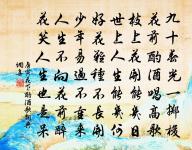 九十春光一擲梭
花前酌酒唱高歌
枝上花開能幾日
世上人生能幾何
好花難種不長開
少年易老不重來
人生不向花前醉
花笑人生也是呆